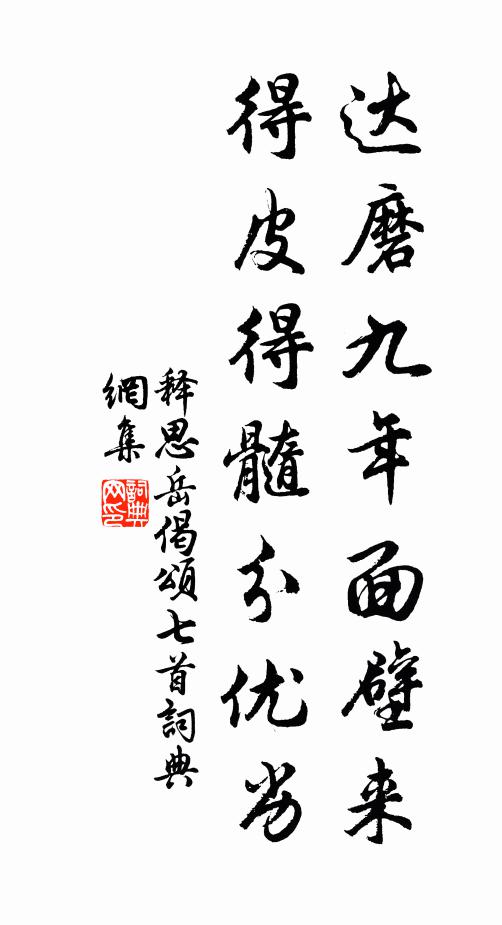 达磨九年面壁来
得皮得髓分优劣
释思岳偈颂七首詞典
網集
詞典
网印